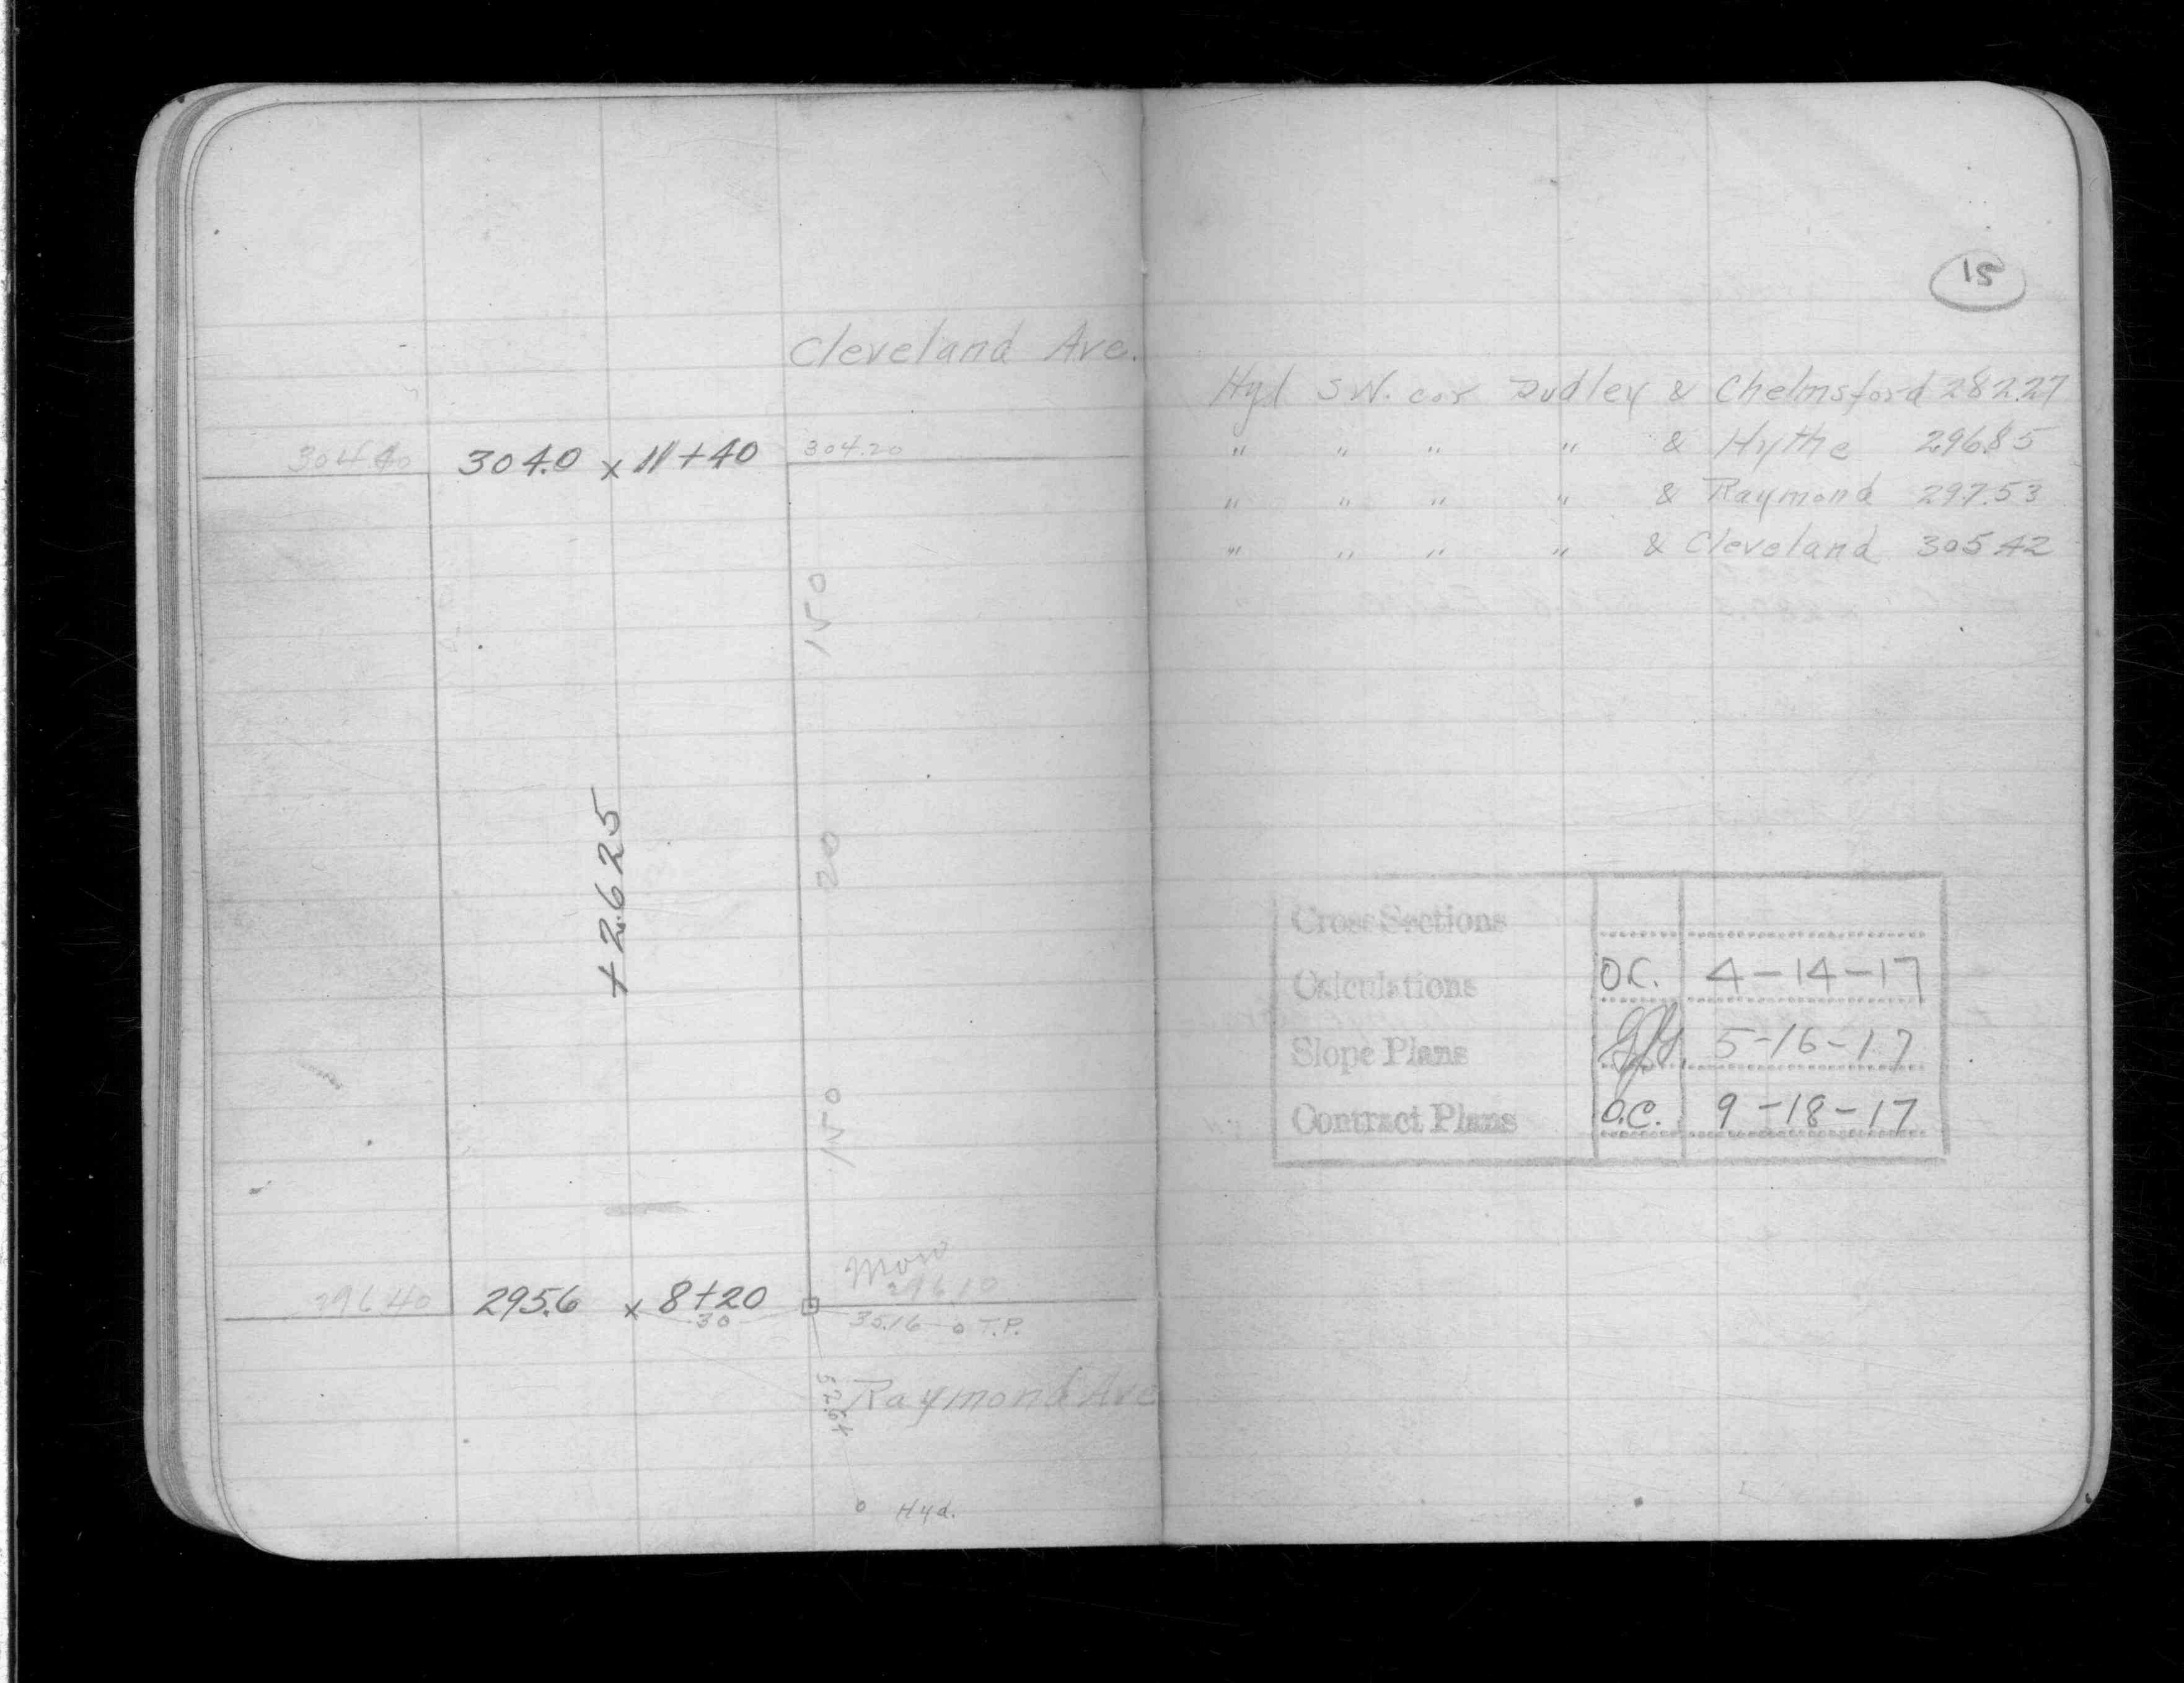 Cleveland Ave.
304.40 304.0 x 11+40 304.20
150
+2.625
20
150
Mon
296.40 295.6 x 8+20 296.10
30 35.16 o T.P.
52.64
Raymond Ave
o Hyd.
15
Hyd S.W. cor Dudley & Chelmsford 282.27
" " " " & Hythe 296.85
" " " " & Raymond 297.53
" " " " & Cleveland 305.42
Cross Sections
Calculations O.C. 4-14-17
Slope Plans 5-16-17
Contract Plans O.C. 9-18-17